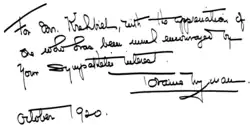 For Mr. Krehbiel, with the appreciation of
one who has been much encouraged by
your sympathetic interest.
October 1920.